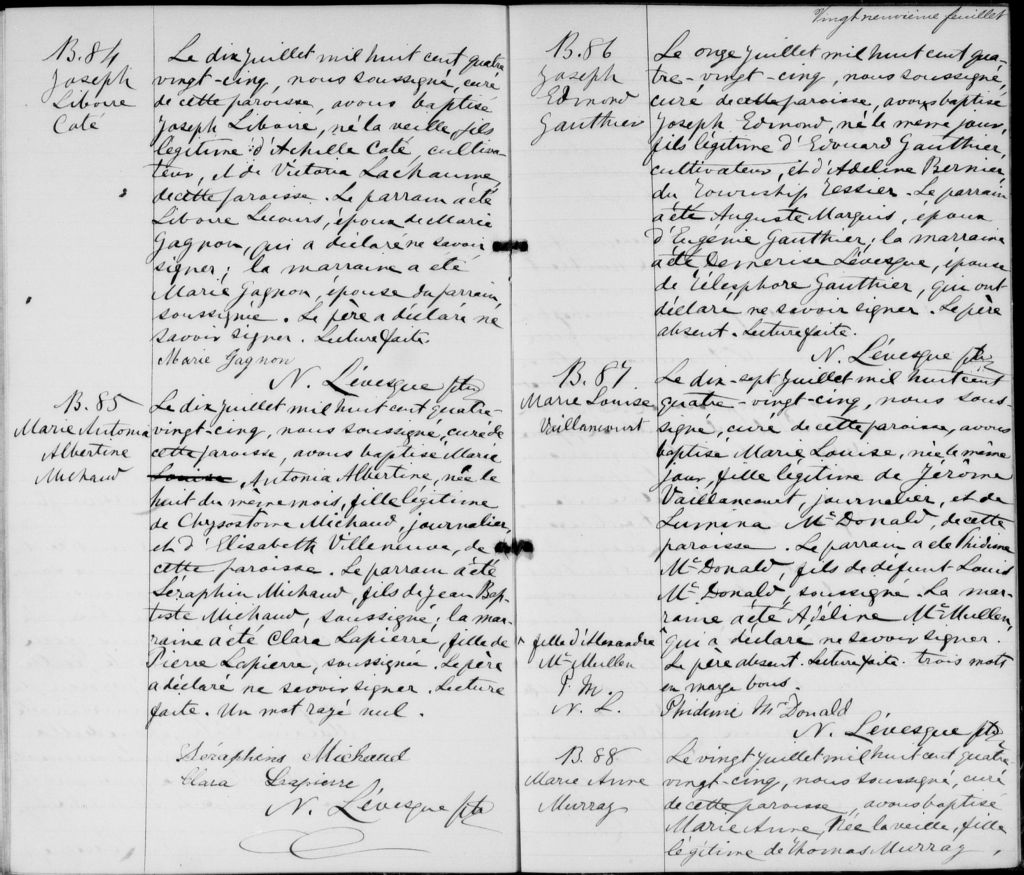 B.84
Joseph
Liboire
Coté
Le dix juillet mil huit cent quatre
vingt-cinq, nous soussigné, curé
de cette paroisse, avons baptisé
Joseph Liboire, né la veille, fils
légitime d'Achille Coté, cultiva-
teur, et de Victoria Lachaume,
de cette paroisse. Le parrain a été
Liboire Lecours, époux de Marie
Gagnon, qui a déclaré ne savoir
signer; la marraine a été
Marie Gagnon, épouse du parrain,
soussignée. Le père a déclaré ne
savoir signer. Lecture faite.
Marie Gagnon
N. Lévesque ptre
B.85
Marie Antonia
Albertine
Michaud
Le dix juillet mil huit cent quatre-
vingt-cinq, nous soussigné, curé de
cette paroisse, avons baptisé Marie
Louise Antonia Albertine, née le
huit du même mois, fille légitime
de Chrysostome Michaud, journalier,
et d'Elisabeth Villeneuve, de
cette paroisse. Le parrain a été
Séraphin Michaud, fils de Jean Bap-
tiste Michaud, soussigné; la mar-
raine a été Clara Lapierre, fille de
Pierre Lapierre, soussignée. Le père
a déclaré ne savoir signer. Lecture
faite. Un mot rayé nul.
Séraphins Michaud
Clara Lapierre
N. Lévesque ptre
Vingt neuvième feuillet
B.86
Joseph
Edmond
Gauthier
Le onze juillet mil huit cent qua-
tre-vingt-cinq, nous soussigné,
curé de cette paroisse, avons baptisé
Joseph Edmond, né le même jour,
fils légitime d'Edouard Gauthier,
cultivateur, et d'Adeline Bernier,
du Township Tessier. Le parrain
a été Auguste Marquis, époux
d'Eugénie Gauthier; la marraine
a été Demerise Lévesque, épouse
de Télesphore Gauthier, qui ont
déclaré ne savoir signer. Le père
absent. Lecture faite.
N. Lévesque ptre
B.87
Marie Louise
Vaillancourt
Le dix-sept juillet mil huit cent
quatre-vingt-cinq, nous sous-
signé, curé de cette paroisse, avons
baptisé Marie Louise, née le même
jour, fille légitime de Jérôme
Vaillancourt, journalier, et de
Lumina McDonald, de cette
paroisse. Le parrain a été Phidime
McDonald, fils de défunt Louis
McDonald, soussigné. La mar-
raine a été Adéline McMullen,
^ fille d'Alexandre
McMullen
P. M.
N. L.
qui a déclaré ne savoir signer.
Le père absent. Lecture faite. trois mots
en marge bons.
Phidime McDonald
N. Lévesque ptre
B.88
Marie Anne
Murray
Le vingt juillet mil huit cent quatre
vingt-cinq, nous soussigné, curé
de cette paroisse, avons baptisé
Marie Anne, née la veille, fille
légitime de Thomas Murray,